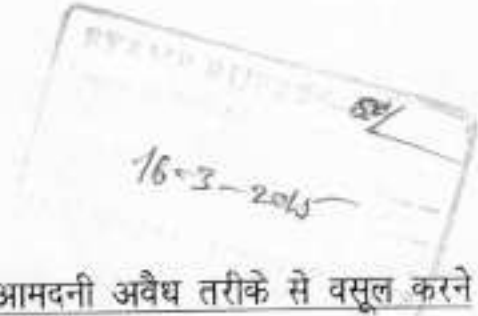 16-3-2015
आमदनी अवैध तरीके से वसूल करने